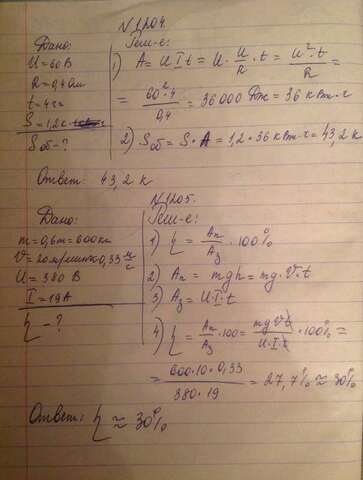 N 1204.
Дано: Реш-е:
U = 60 В
R = 0,4 Ом
t = 4 ч
S = 1,2 к
Sоб - ?
1) A = UIt = U · U/R · t = U² · t / R =
= 60² · 4 / 0,4 = 36000 Дж = 36 кВт·ч
2) Sоб = S · A = 1,2 · 36 кВт·ч = 43,2 к
Ответ: 43,2 к
N 1205.
Дано: Реш-е:
m = 0,6 т = 600 кг
V = 20 м/мин ≈ 0,33 м/с
U = 380 В
I = 19 А
η - ?
1) η = Aп/Aз · 100%
2) Aп = mgh = mg · V · t
3) Aз = U · I · t
4) η = Aп/Aз · 100 = mgVt / U·I·t · 100% =
= 600 · 10 · 0,33 / 380 · 19 = 27,7% ≈ 30%
Ответ: η ≈ 30%